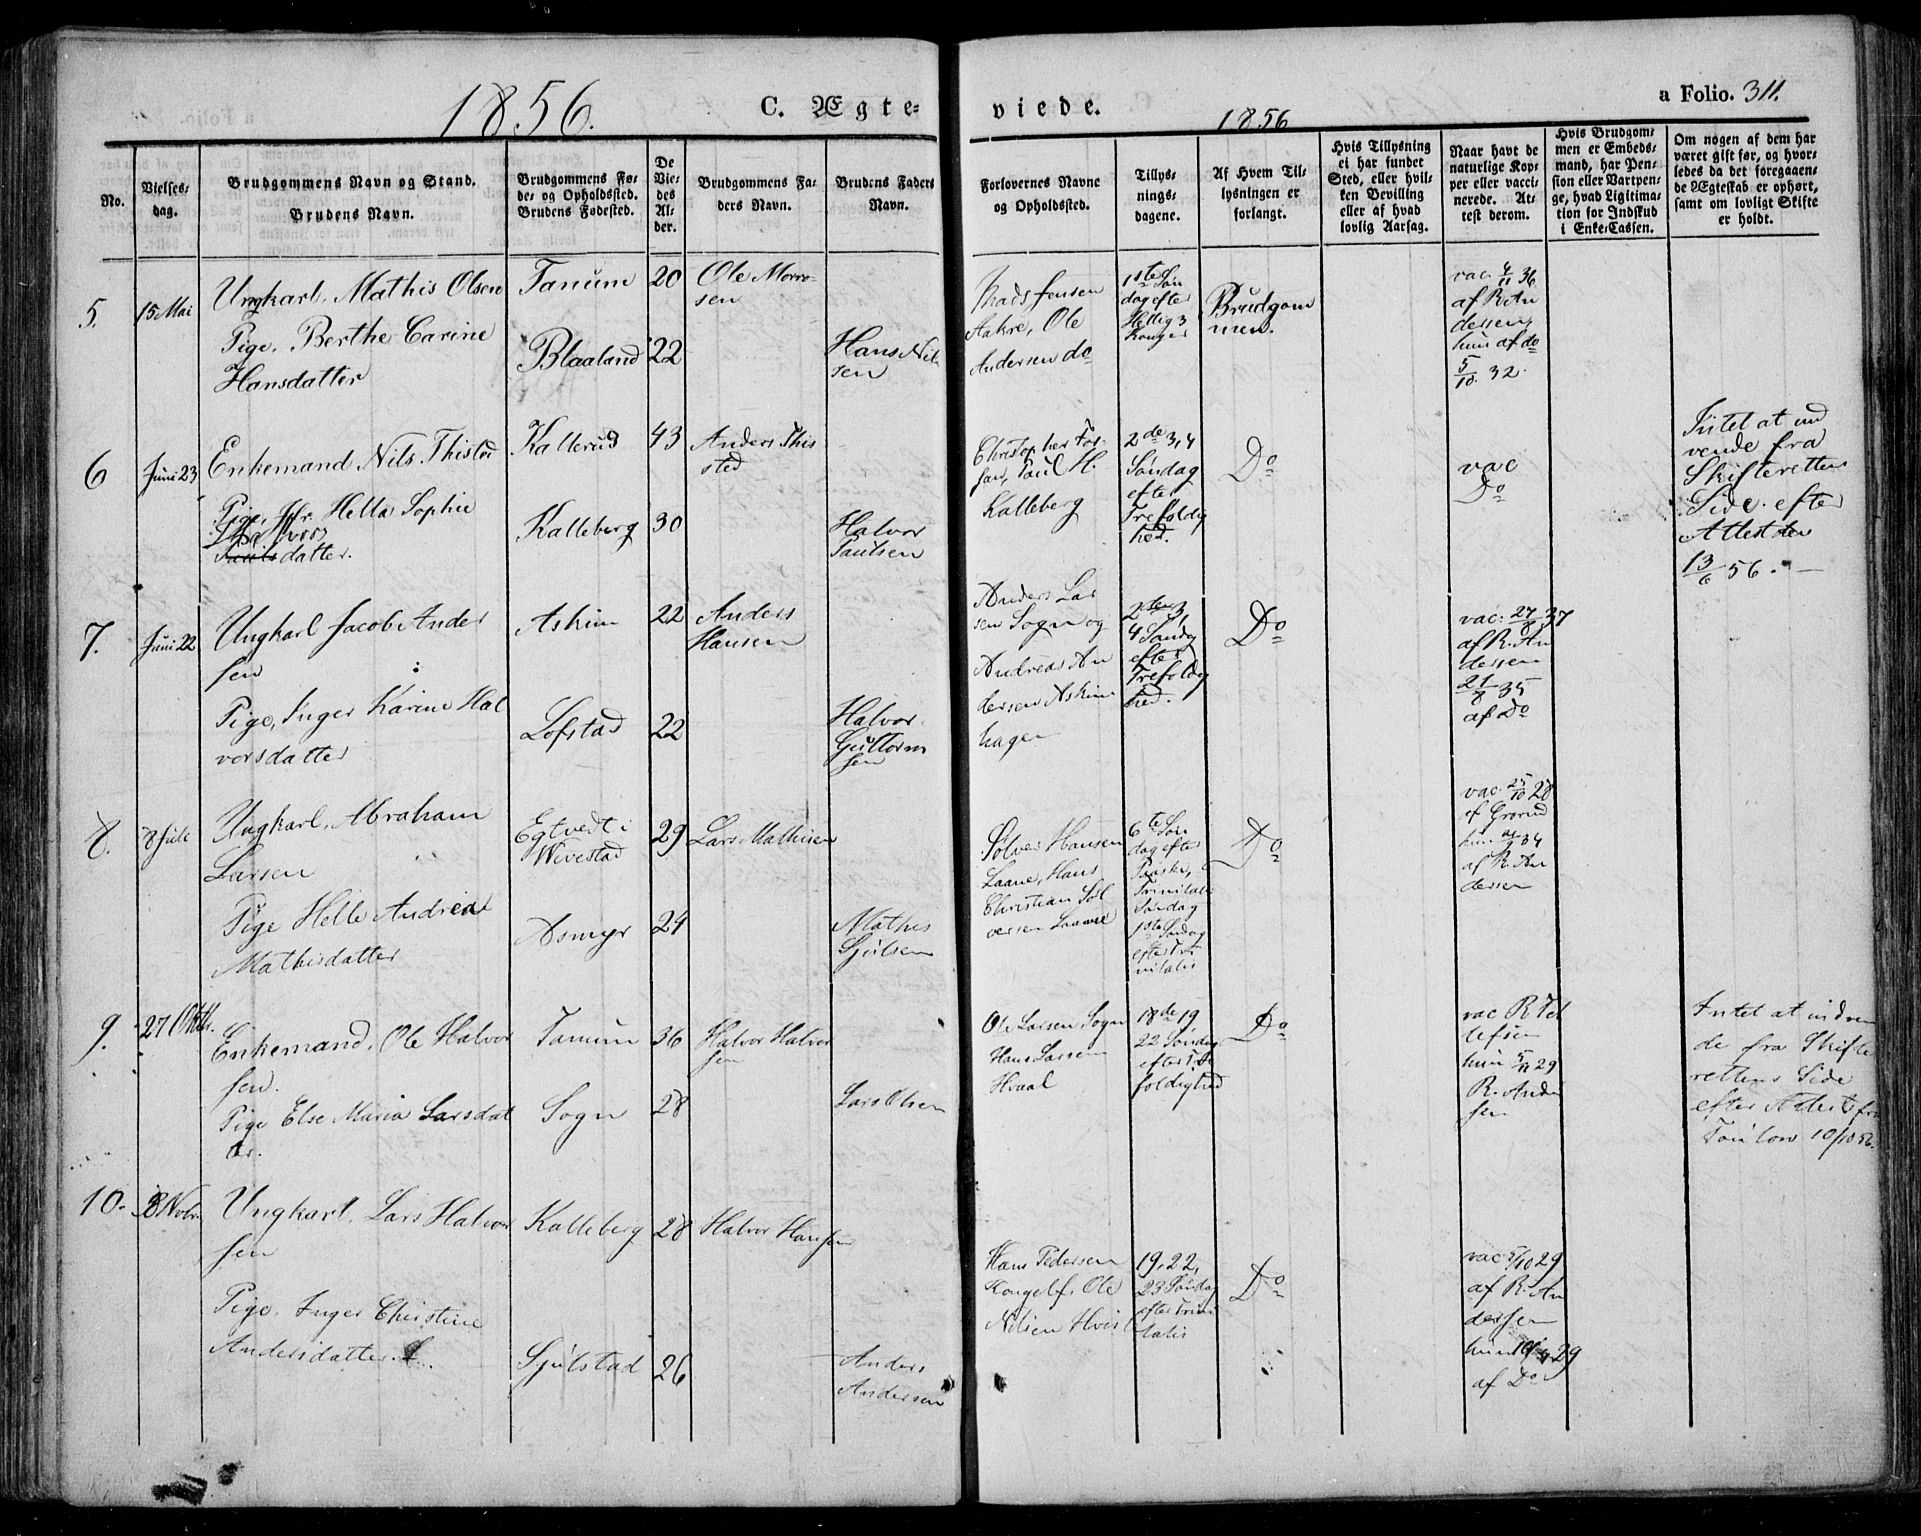 1856.
C. Ægte-
viede.
1856
a Folio. 311.
No.
Vielses-
dag.
Brudgommens Navn og Stand.
Brudens Navn.
Brudgommens Fø-
de- og Opholdssted.
Brudens Fødested.
De
Vie-
des
Al-
der.
Brudgommens Fa-
ders Navn.
Brudens Faders
Navn.
Forlovernes Navne
og Opholdssted.
Tillys-
nings-
dagene.
Af Hvem Til-
lysningen er
forlangt.
Hvis Tillysning
ei har fundet
Sted, eller hvil-
ken Bevilling
eller af hvad
lovlig Aarsag.
Naar havt de
naturlige Kop-
per eller vacci-
nerede. At-
test derom.
Hvis Brudgom-
men er Embeds-
mand, har Pen-
sion eller Vartpen-
ge, hvad Ligitima-
tion for Indskud
i Enke-Cassen.
Om nogen af dem har
været gift før, og hvor-
ledes da det foregaaen-
de Ægteskab er ophørt,
samt om lovligt Skifte
er holdt.
5.
15 Mai
Ungkarl, Mathis Olsen
Pige, Berthe Carine
Hansdatter
Tanum
Blaaland
20
22
Ole
sen
Hans Nil
sen
Mads Jensen
Aakre, Ole
Andersen do
1ste Søn
dag efter
Hellig 3
Konger
Brudgom
men.
vac. 4/11 36
af R. An
dessen
hun af do
5/10. 32.
6
Juni 23
Enkemand Nils Thisted
Pige, Helle Sophie
datter.
Kallerud
Kalleberg
43
30
Anders This
sted
Halvor
Paulsen
Christopher
Paul H.
Kalleberg
2de 3, 4
Søndag
efter
Trefoldig
hed.
Do
vac
Do
Intet at ind
vende fra
Skifterettens
Side. efter
Attest den
13/6 56.
7.
Juni 22
Ungkarl Jacob Ander
sen
Pige, Inger Karine Hal
vorsdatter
Askim
Løfstad
22
22
Anders
Hansen
Halvor
Guttorm
sen
Anders Lar
sen Sogn og
Andreas An
dersen Askim
hagen
2den 3,
4 Søndag
efter
Trefoldig
hed.
Do
vac. 27/8 37
af R. An
dessen
21/8 35
af Do
8.
8 Juli
Ungkarl, Abraham
Larsen
Pige Helle Andrea
Mathisdatter
Egtvedt i
Wivestad
Asmyr
29
24
Lars Mathisen
Mathis
Gjulsen
Sølver Hansen
Laane, Hans
Christian Søl
versen Laane
6te Søn
dag efter
Paaske,
Trinitatis
Søndag
1ste Søndag
efter Tri
nitatis
Do
vac. 25/10 28
hun 34
af R. An
dersen
9.
27 Octb.
Enkemand, Ole Halvor
sen.
Pige Else Maria Larsdat
ter.
Tanum
Sogn
36
28
Halvor Halvor
sen
Lars Olsen
Ole Larsen Sogn
Hans Larsen
Hvaal
18de 19
22 Søndag
efter Tre
foldighed
Do
vac R. Tel
lefsen
hun 5/11 29
R. Ander
sen
Intet at indven
de fra Skifte
rettens Side
efter Attest fra
10/10 56.
10.
3 Novbr
Ungkarl, Lars Halvor
sen
Pige, Inger Christine
Andersdatter.
Kalleberg
Gjulstad
28
26
Halvor Hansen
Anders
Andersen
Hans Pedersen
Kongelf, Ole
Nilsen Hvis
19, 22,
23 Søndag
efter Trini
tatis
Do
vac. 29
af R. An
dersen
hun 29
af Do